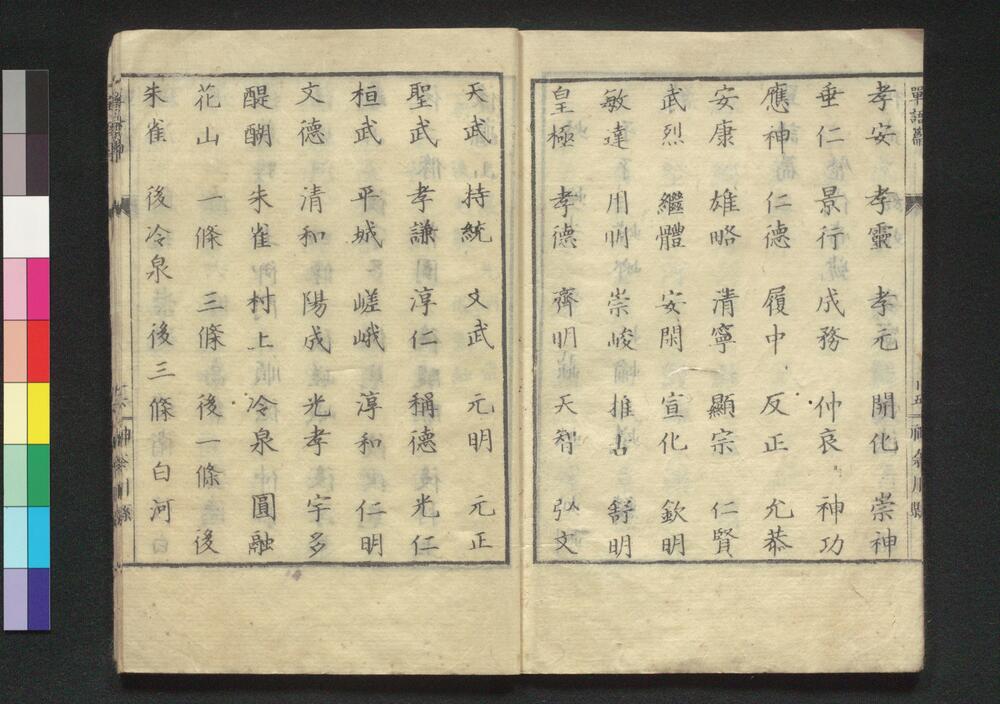 單語篇 十五 神奈川縣
孝安 孝靈 孝元 開化 崇神
垂仁 景行 成務 仲哀 神功
應神 仁德 履中 反正 允恭
安康 雄略 清寧 顯宗 仁賢
武烈 繼體 安閑 宣化 欽明
敏達 用明 崇峻 推古 舒明
皇極 孝德 齊明 天智 弘文
天武 持統 文武 元明 元正
聖武 孝謙 淳仁 稱德 光仁
桓武 平城 嵯峨 淳和 仁明
文德 清和 陽成 光孝 宇多
醍醐 朱雀 村上 冷泉 圓融
花山 一條 三條 後一條 後
朱雀 後冷泉 後三條 白河
神奈川縣